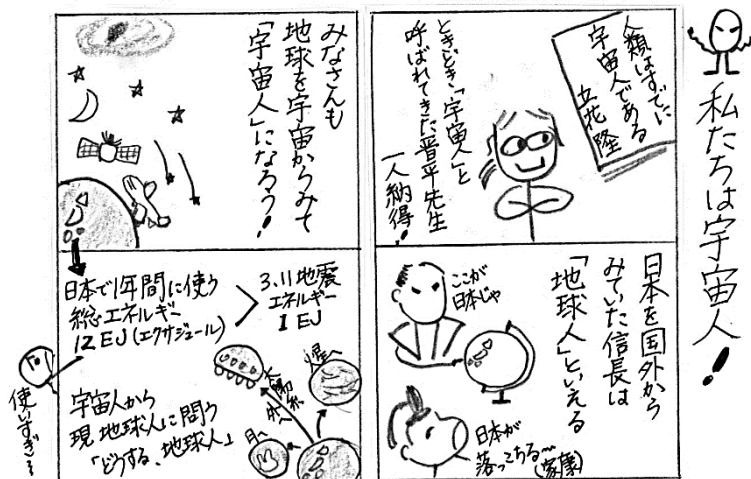 私たちは宇宙人!
人類はすでに
宇宙人である
立花隆
ときどき、「宇宙人」と
呼ばれてきた晋平先生
一人納得!
日本を国外から
みていた信長は
「地球人」といえる
ここが
日本じゃ
日本が
落っこちる〜
(家康)
みなさんも
地球を宇宙からみて
「宇宙人」になろう!
日本で1年間に使う
総エネルギー
12EJ(エクサジュール)
>
3.11地震
エネルギー
1EJ
使いすぎ〜
宇宙人から
現地球人に問う
「どうする、地球人」
月へ
太陽系外へ
火星へ